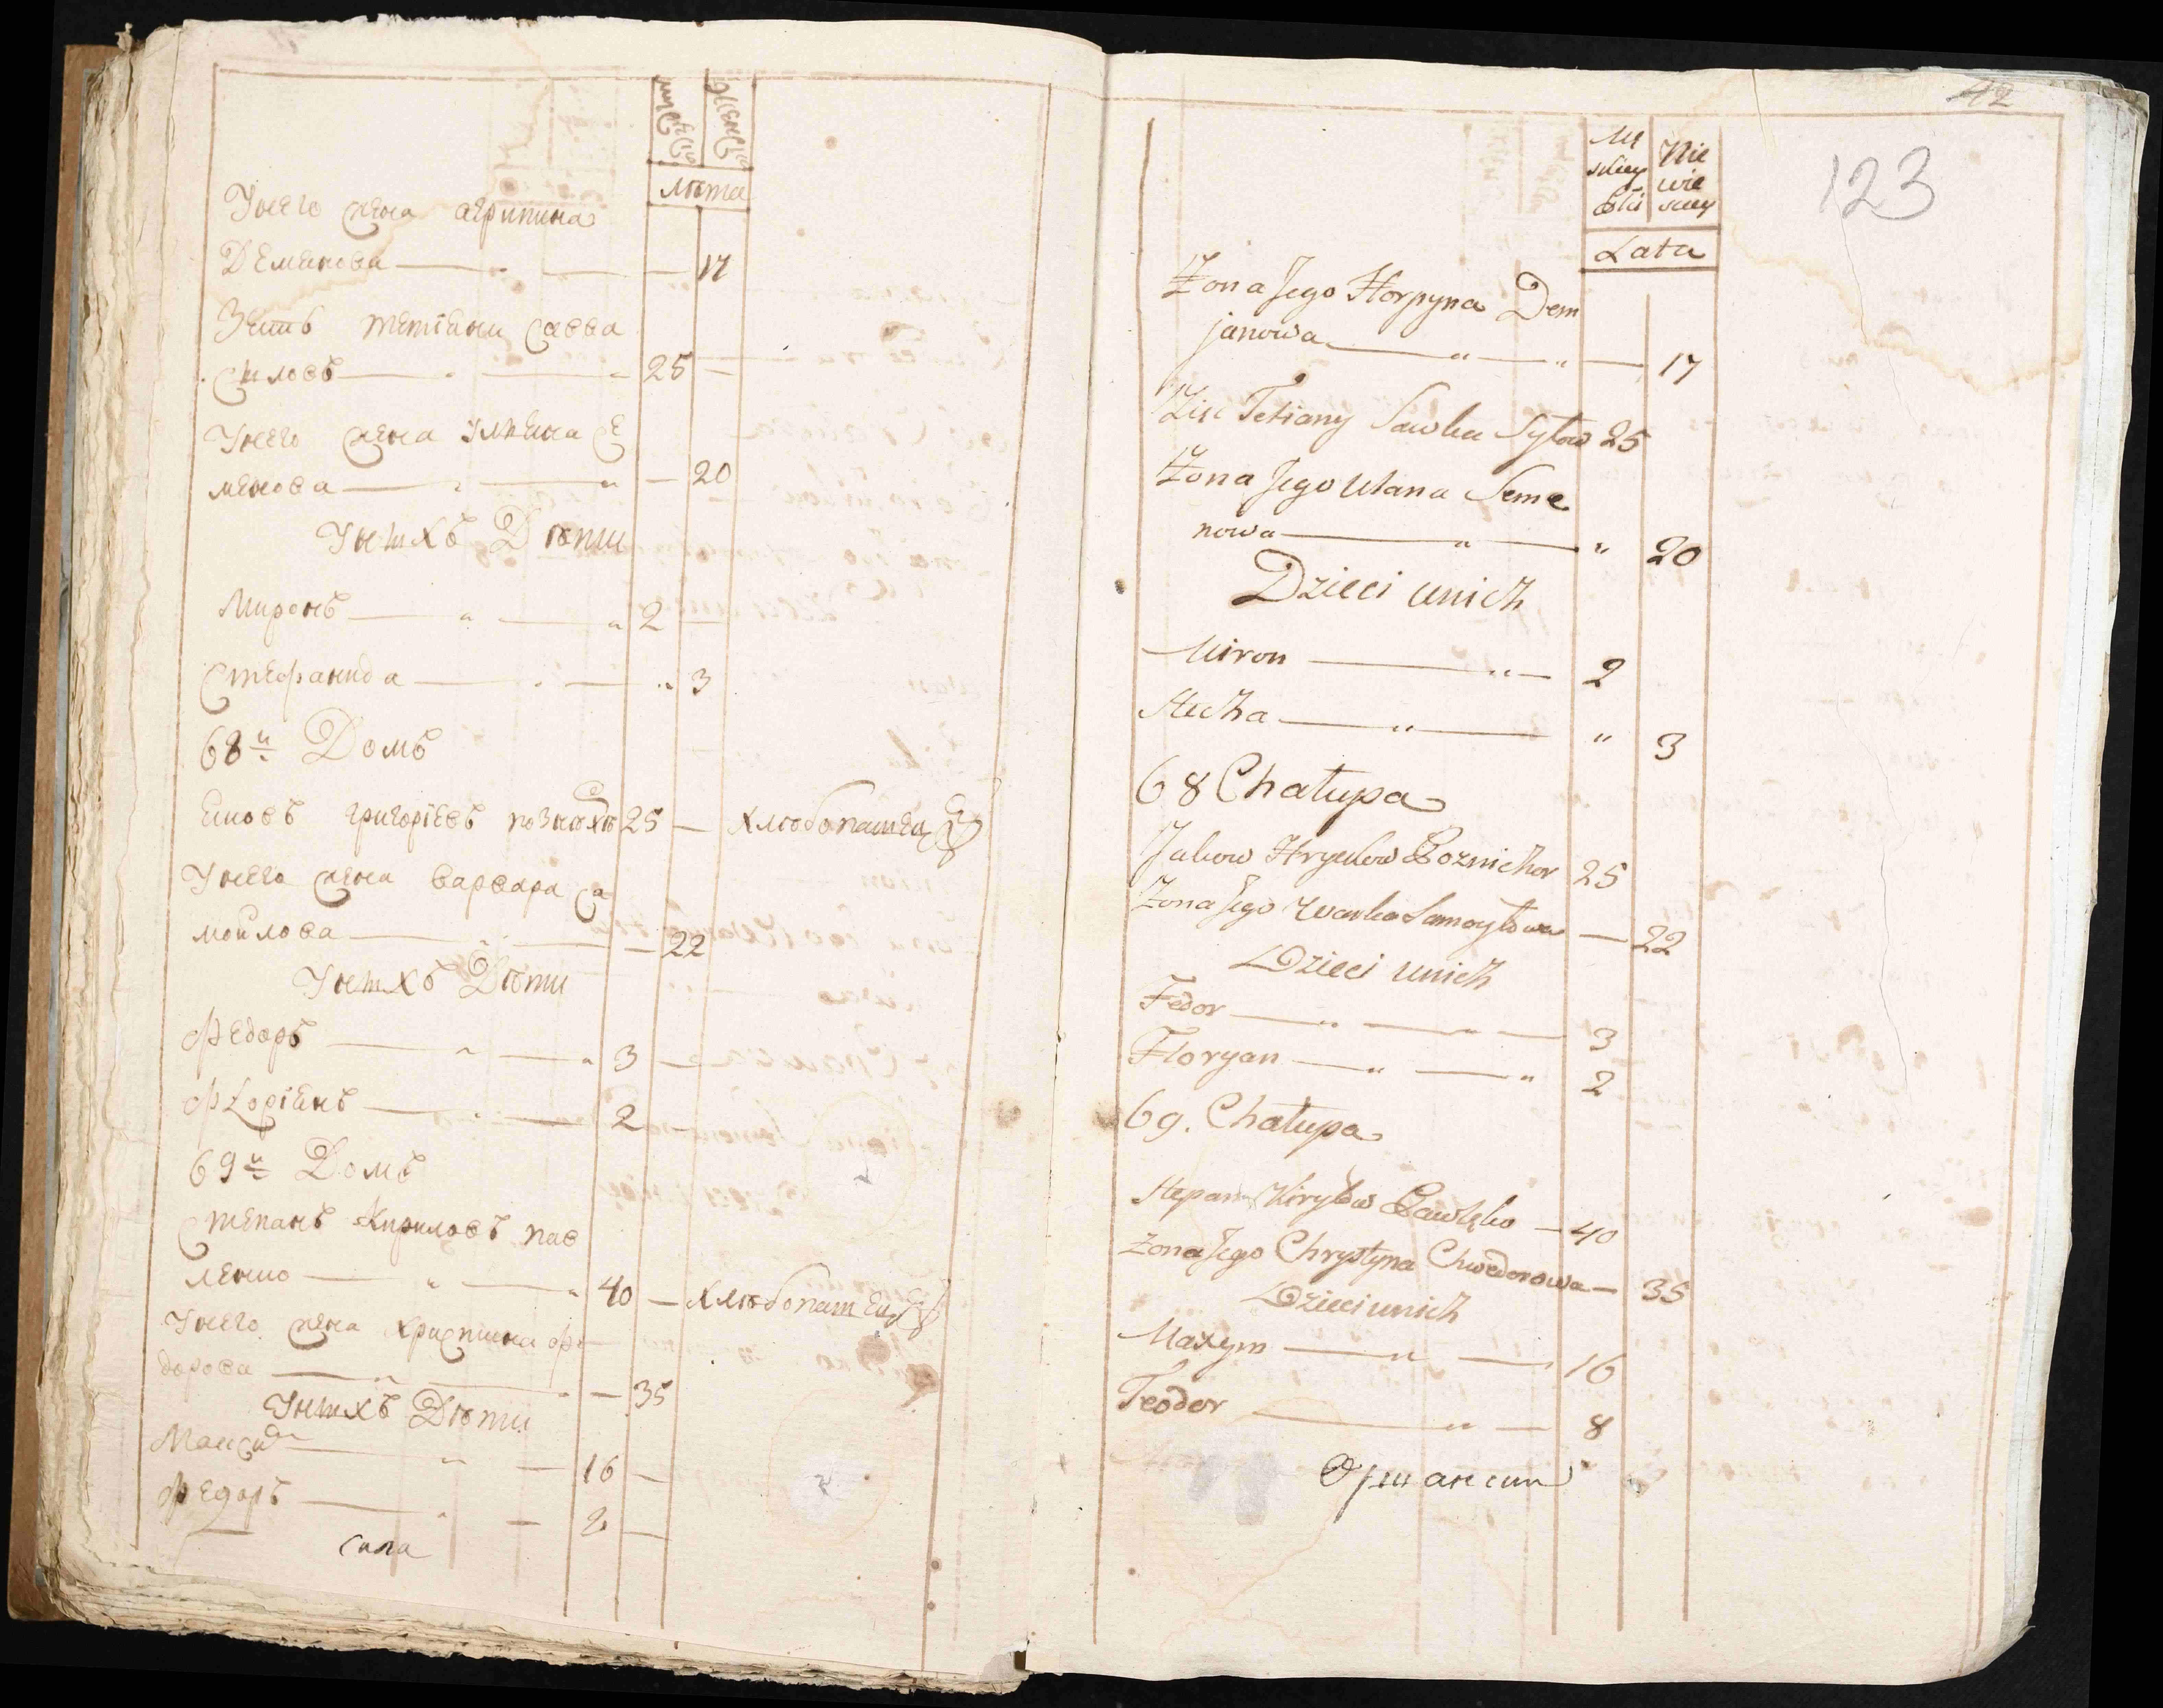 лѣта
Унего жена агрипина
Демянова — " — — 17
Зять тетіяни савва
силовъ — " — " 25 —
Унего жена уляяна се
менова — " — " — 20
Унихъ Дѣти
Миронъ — " — " 2 —
Стефанида — " — " 3
68й Домъ
яковъ григоріевъ познѣхо 25 — хлѣбопашецъ
Унего жена варвара са
мойлова — " — — 22
Унихъ Дѣти
Федоръ — " — " 3 —
Флоріянъ — " — 2 —
69й Домъ
Степанъ Кириловъ пав
ленко — " — " 40 — хлѣбопашецъ
Унего жена христина фе
дорова — " — " — 35
Унихъ Дѣти
Максимъ — " — 16 —
Федоръ — " — 8 —
42
123
Mę skiey płci
Nie wie sciey
Lata
Żona Jego Horpyna Dem
janowa — " — " — 17
Zięc Tetiany Sawka Syłow 25
Żona Jego Ulana Seme
nowa — " — " 20
Dzieci unich
Miron — " — 2
Stecha — " — " 3
68 Chałupa
Jakow Hryckow Poznichor 25
Zona Jego Warka Samoyłowa — 22
Dzieci unich
Fedor — " — " — 3
Floryan — " — " 2
69. Chałupa
Stepan Kiryłow Pawlęko — 40
Zona Jego Chrystyna Chwedorowa — 35
Dzieci unich
Maxym — " — 16
Teodor — " — 8